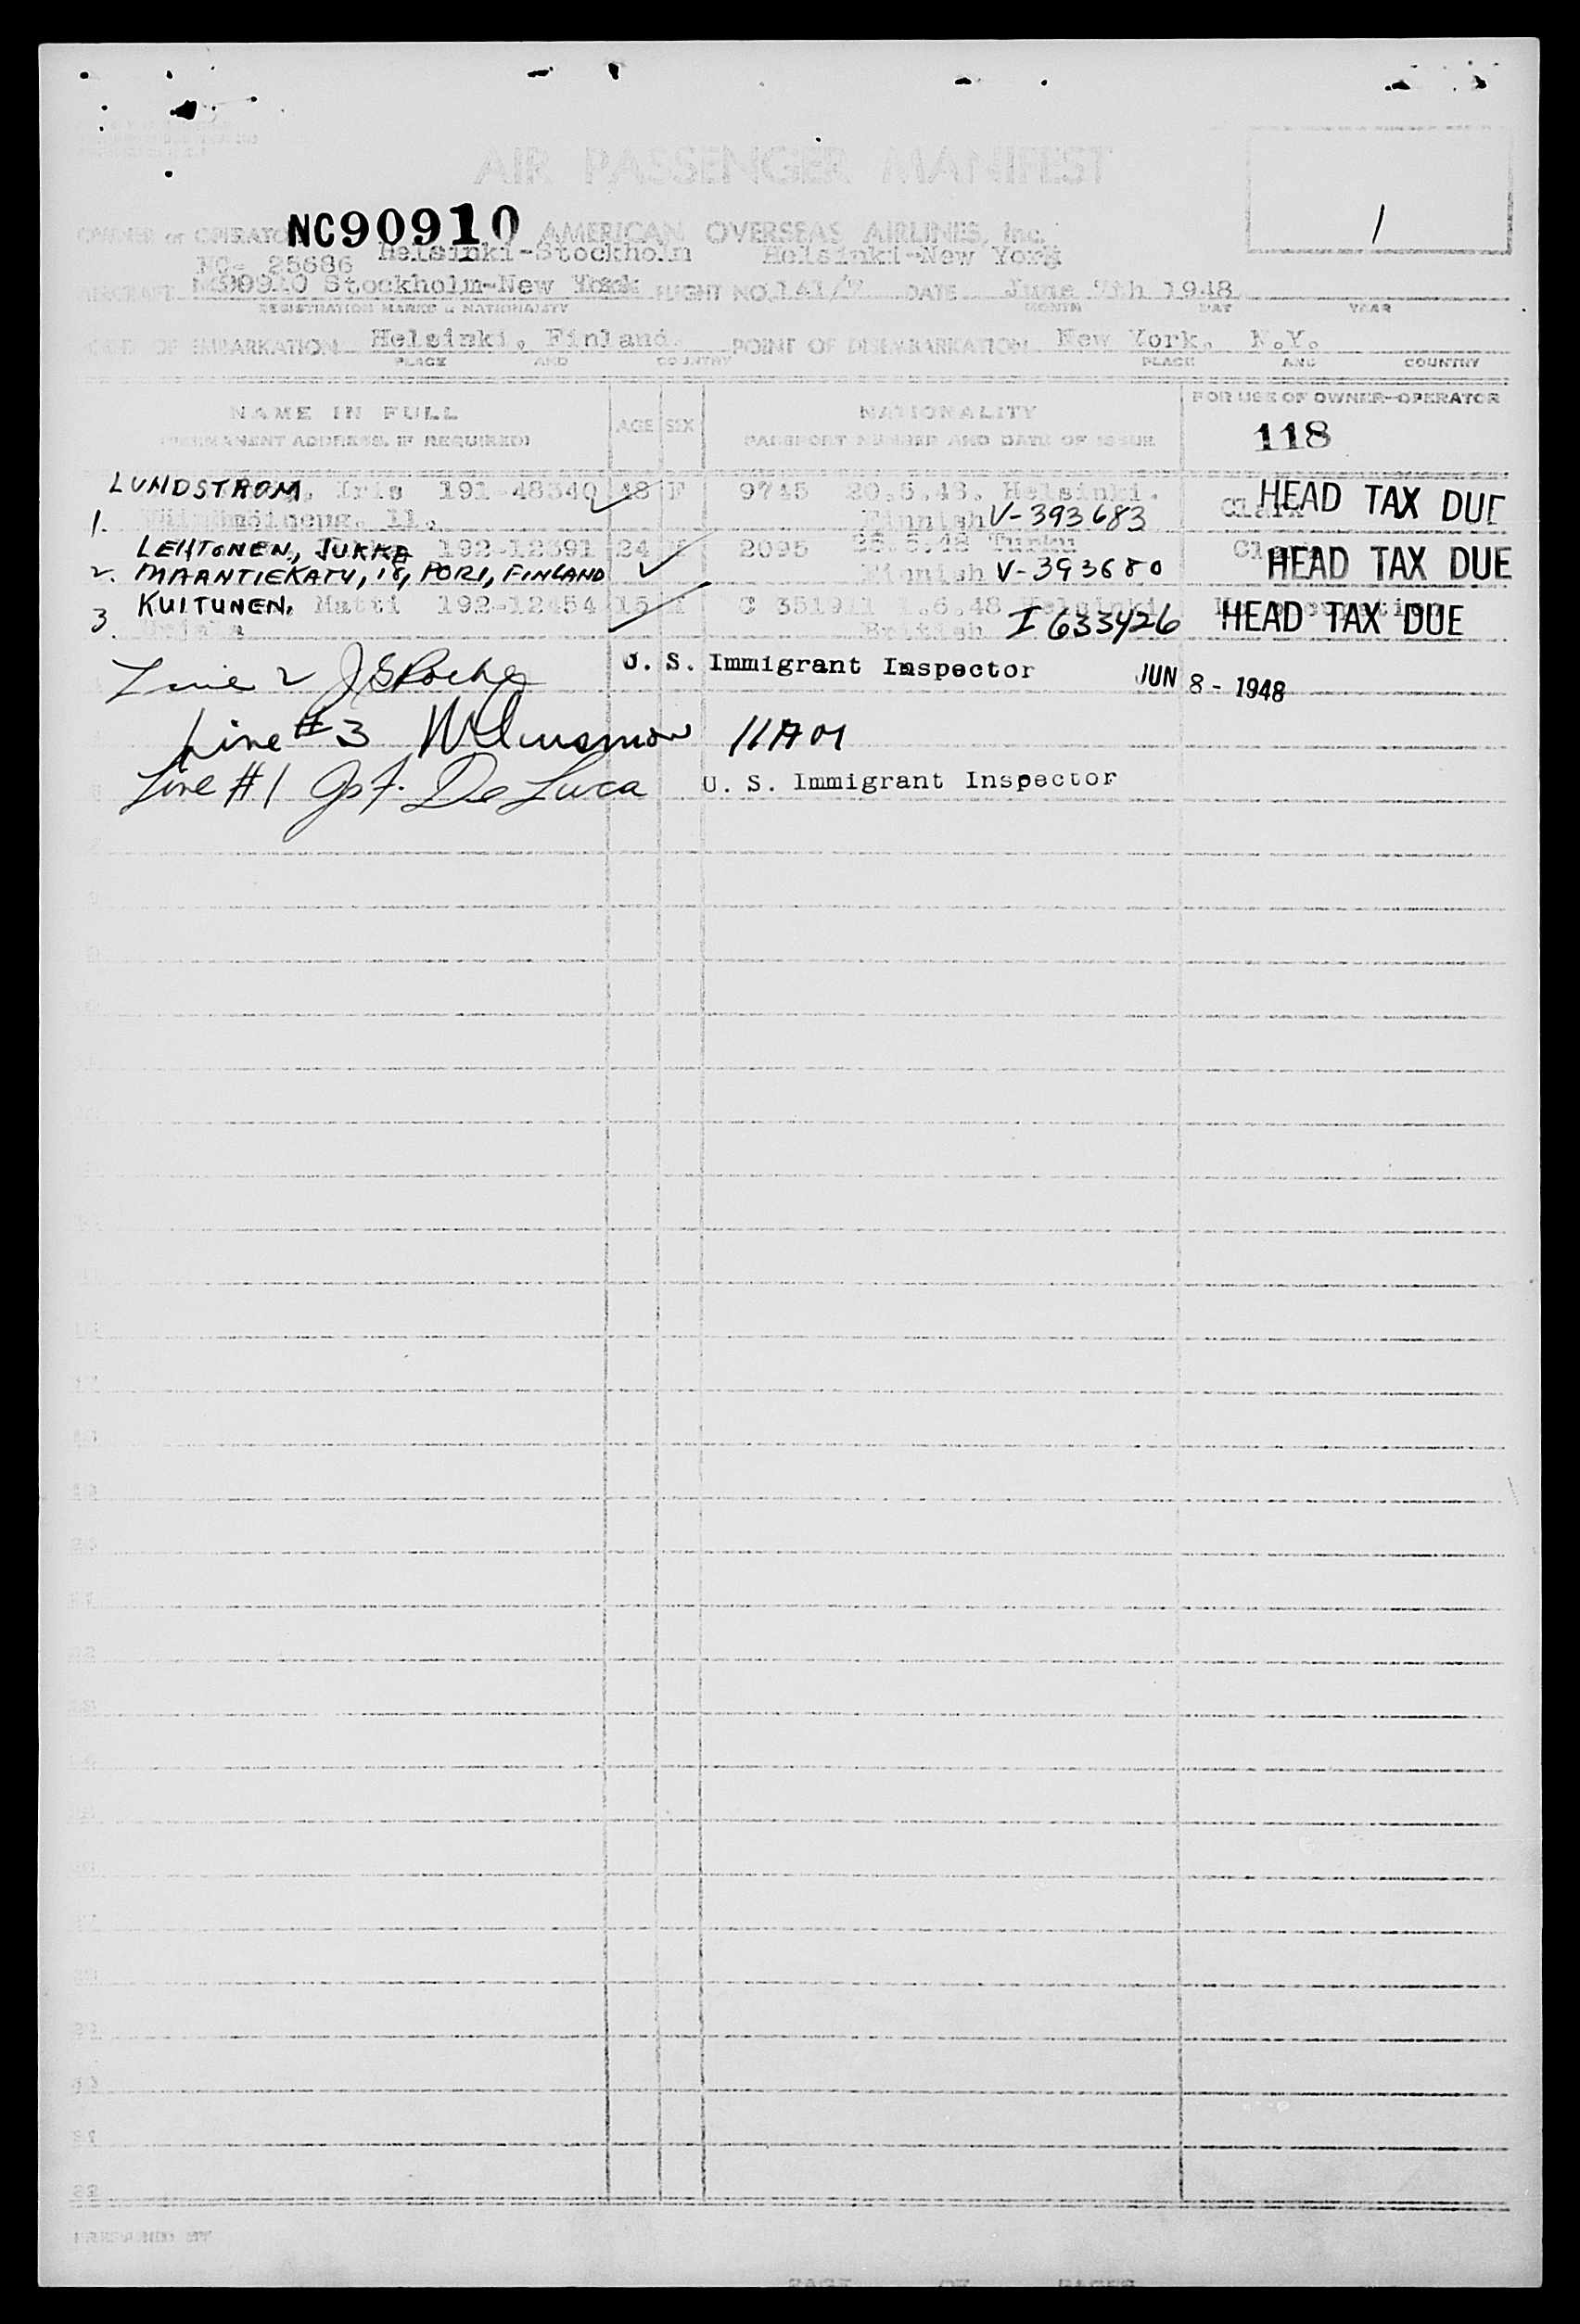 AIR PASSENGER MANIFEST
1
OWNER or OPERATOR NC90910 AMERICAN OVERSEAS AIRLINES, Inc.
NC- 25686 Helsinki-Stockholm Helsinki-New York
AIRCRAFT NC90910 Stockholm-New York FLIGHT NO. 141/7 DATE June 7th 1948
REGISTRATION MARKS & NATIONALITY MONTH DAY YEAR
POINT OF EMBARKATION Helsinki, Finland. POINT OF DISEMBARKATION New York, N.Y.
PLACE AND COUNTRY PLACE AND COUNTRY
NAME IN FULL AGE SEX NATIONALITY FOR USE OF OWNER-OPERATOR
(PERMANENT ADDRESS, IF REQUIRED) PASSPORT NUMBER AND DATE OF ISSUE 118
LUNDSTROM, Iris 191-48340 48 F 9745 20.5.48. Helsinki. HEAD TAX DUE
1. Finnish V-393683 Clerk
LEHTONEN, JUKKA 192-12391 24 2095 25.5.48 Turku HEAD TAX DUE
2. MAANTIEKATU, 18, PORI, FINLAND Finnish V-393680
KUITUNEN, Matti 192-12454 15 C 351911 .6.48 Helsinki HEAD TAX DUE
3. British I 633426
Line 2 J S Roche U. S. Immigrant Inspector JUN 8 - 1948
Line #3 11AM
Line #1 Jos F. De Luca U. S. Immigrant Inspector
PREPARED BY
PAGE OF PAGES